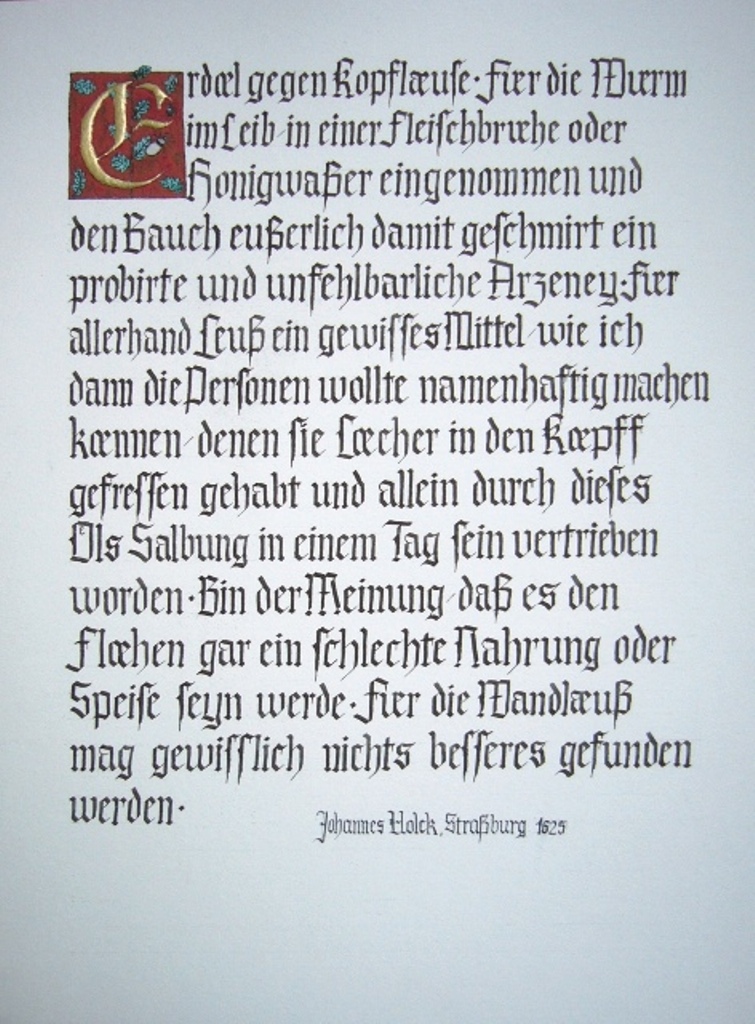 Erdœl gegen Kopflæuse · fier die Wuerm
im Leib in einer Fleischbruehe oder
Honigwaßer eingenommen und
den Bauch eußerlich damit geschmirt ein
probirte und unfehlbarliche Arzeney · fier
allerhand Leuß ein gewisses Mittel wie ich
dann die Personen wollte namenhaftig machen
kœnnen denen sie Lœcher in den Kœpff
gefressen gehabt und allein durch dieses
Ols Salbung in einem Tag sein vertrieben
worden · Bin der Meinung daß es den
Flœhen gar ein schlechte Nahrung oder
Speise seyn werde · fier die Wandlæuß
mag gewisslich nichts besseres gefunden
werden ·
Johannes Volck, Straßburg 1625